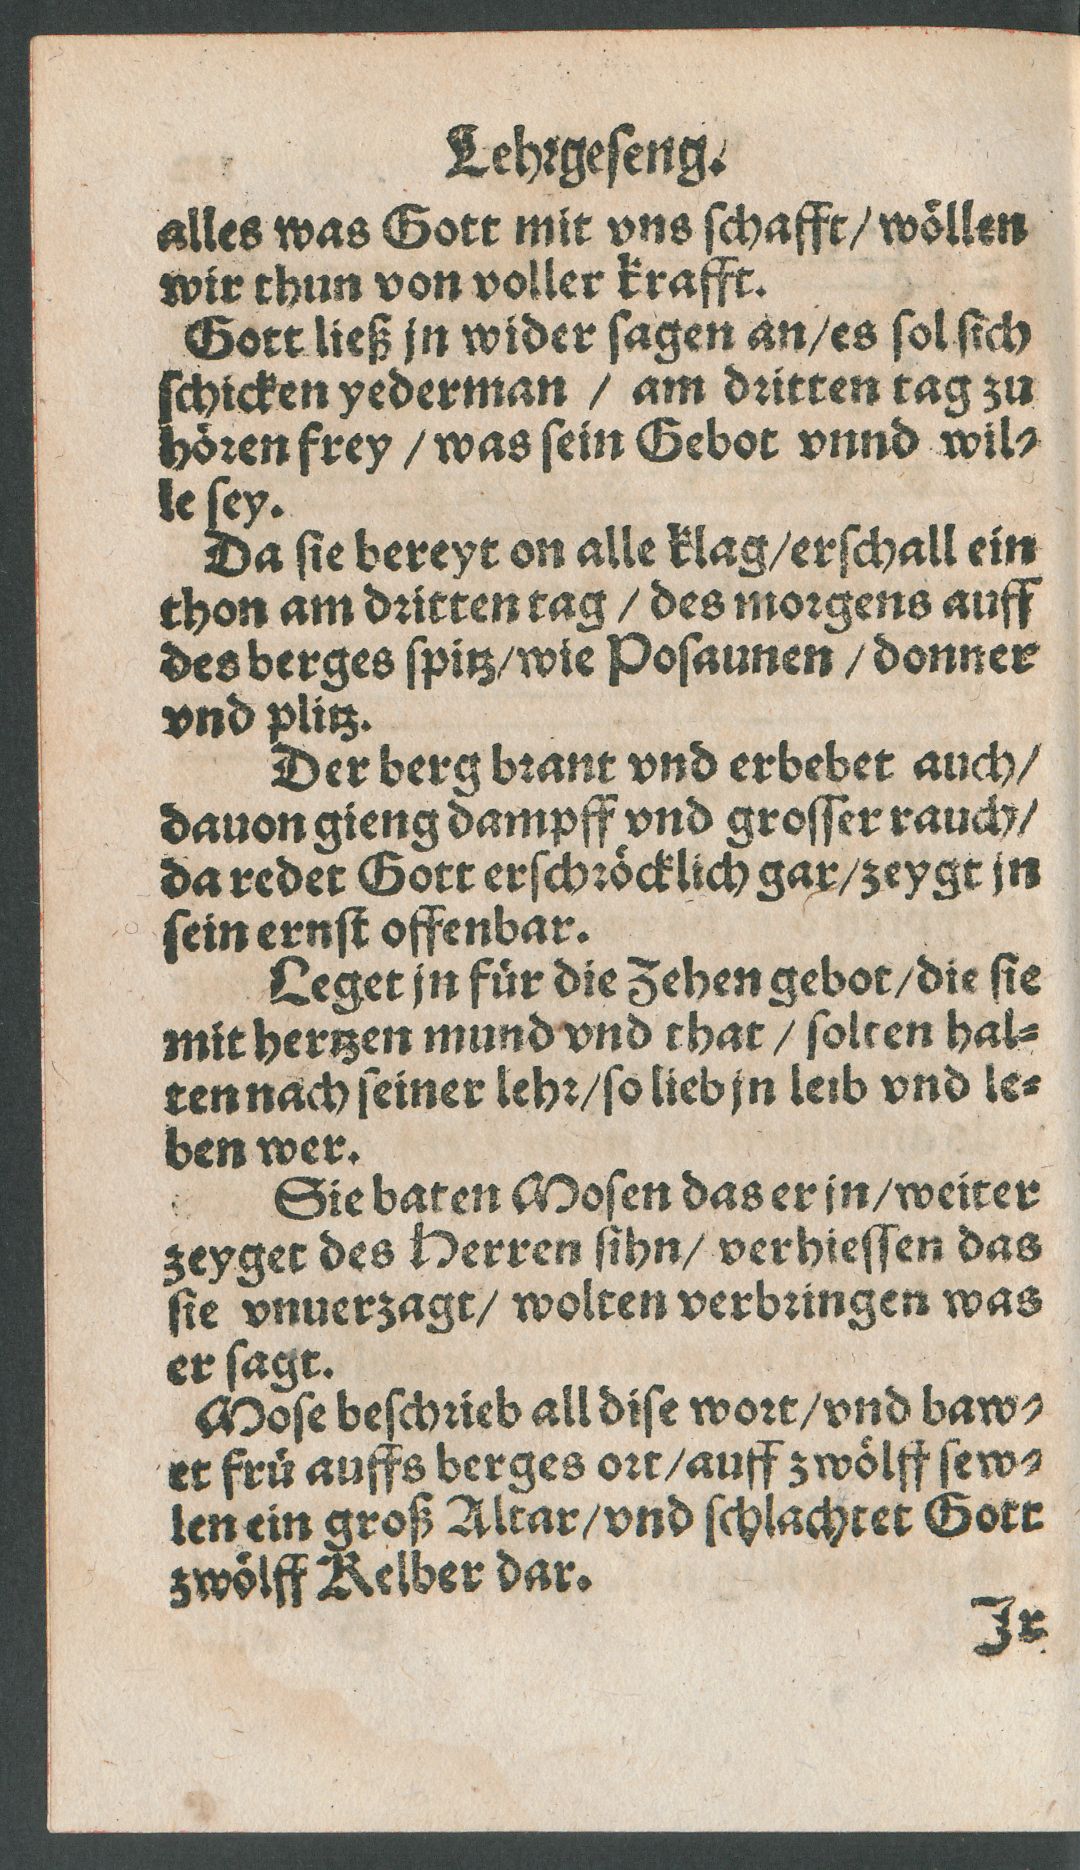 Lehrgeseng.
alles was Gott mit vns schafft/ wöllen
wir thun von voller krafft.
Gott ließ jn wider sagen an/es sol sich
schicken yederman / am dritten tag zu
hören frey /was sein Gebot vnnd wil⸗
le sey.
Da sie bereyt on alle klag/erschall ein
thon am dritten tag / des morgens auff
des berges spitz/wie Posaunen /donner
vnd plitz.
Der berg brant vnd erbebet auch/
dauon gieng dampff vnd grosser rauch/
da redet Gott erschröcklich gar/zeygt jn
sein ernst offenbar.
Leget jn für die Zehen gebot/die sie
mit hertzen mund vnd that / solten hal⸗
ten nach seiner lehr/so lieb jn leib vnd le⸗
ben wer.
Sie baten Mosen das er jn/weiter
zeyget des Herren sihn/ verhiessen das
sie vnuerzagt/ wolten verbringen was
er sagt.
Mose beschrieb all dise wort/vnd baw⸗
et frü auffs berges ort/auff zwölff sew⸗
len ein groß Altar/vnd schlachtet Gott
zwölff Kelber dar.
Jr